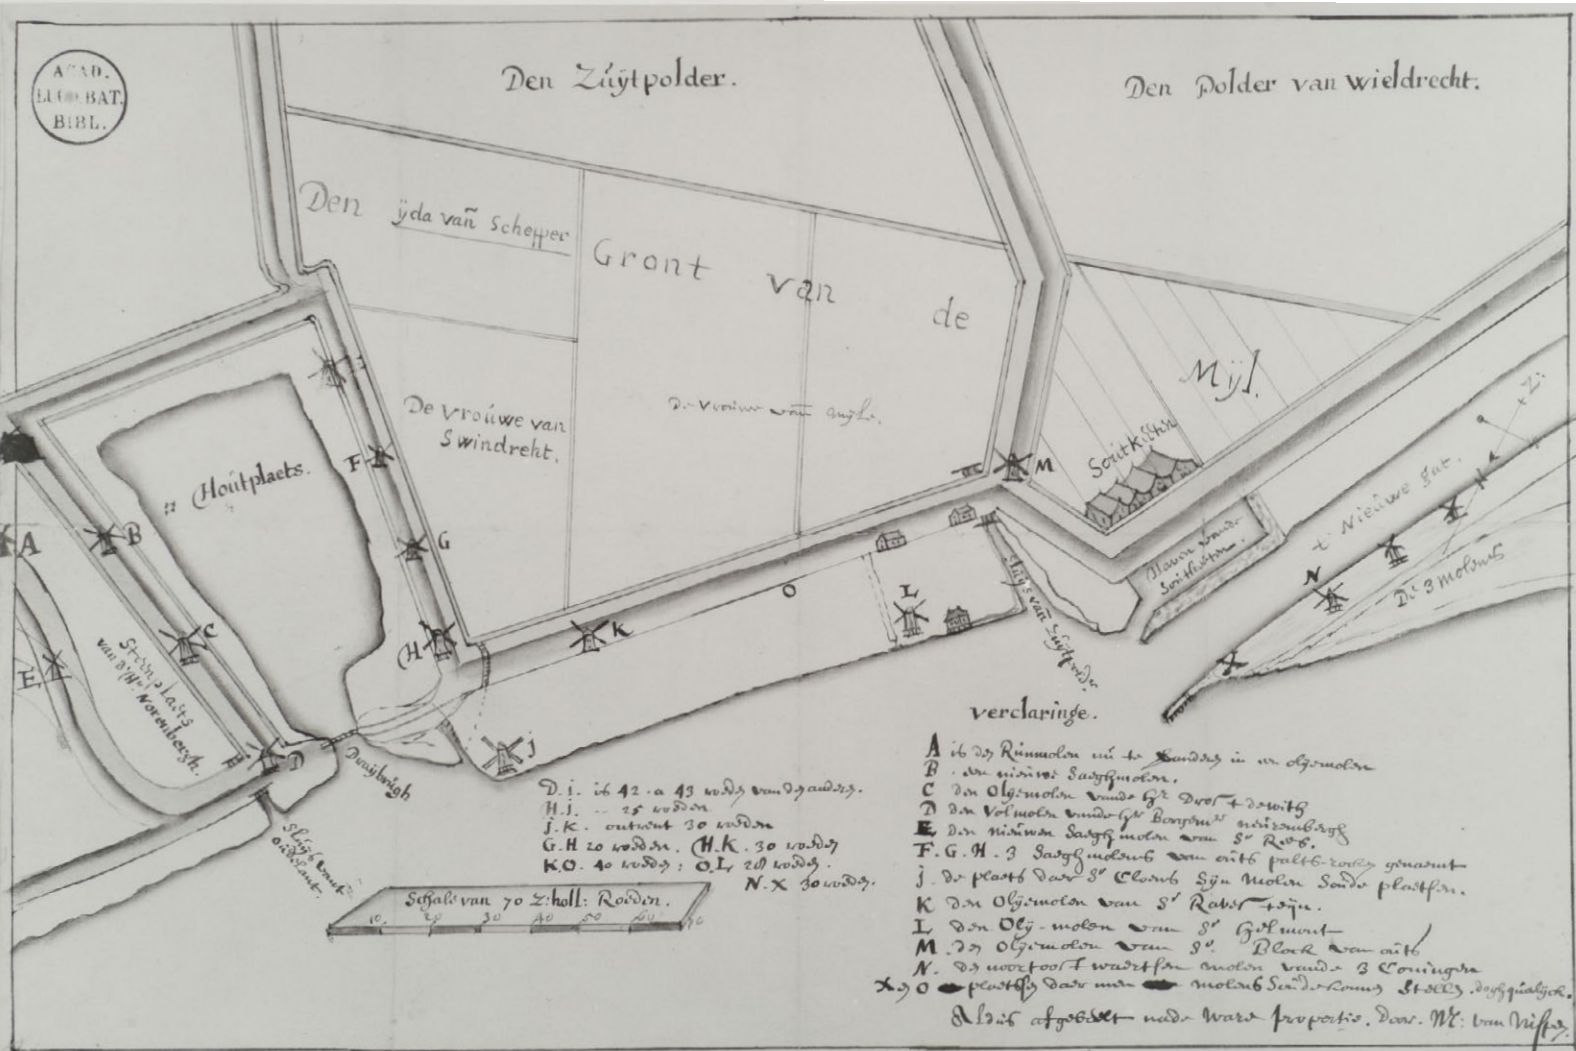 ACAD.
LUGD. BAT.
BIBL.
Den Zúÿtpolder.
Den Polder van wieldrecht.
Den ÿda vañ Schepper
Gront van de
Mÿl.
De vroúwe van
Swindreht.
De vroúwe vañ mÿle.
Soútkeeten
Hoútplaets.
F
G
H
B
A
C
D
E
K
O
L
M
N
X
j
Steinplaets
van d'Hr Norenbergh.
Draÿbrúgh
Slúÿs vant
oúdelant.
Slúÿs van Zúÿtpolder.
Haven vande
Soútkeeten.
t' Nieúwe gat.
De 3 molens
Z:
N
D. j. is 42 . a 43 roeden van den anderen.
H. j. -- 25 roeden
j. K. ontrent 30 roeden
G. H 20 roeden. H. K. 30 roeden
K O. 40 roeden: O. L 28 roeden.
N. X 30 roeden.
Schale van 70 Z: holl: Roeden.
10 20 30 40 50 60 70
verclaringe.
A is den Rúnmolen nú te veranderen in een olyemolen
B . een nieúwe Saeghmolen.
C den Olyemolen vande Hr Drost dewith
D den Volmolen vande Hr Borgemr neúrenbergh
E den nieúwen Saeghmolen van Sr Rees.
F. G. H. 3 Saeghmolens van oúts palts-rocken genaemt
j. de plaets daer Sr Cloens Syn Molen Soúde plaetsen.
K den Olyemolen van Sr Ravesteÿn.
L den Olÿ-molen van Sr Helmont
M . den Olyemolen van Sr. Block van oúts
N. de noortoostwaertsen molen vande 3 Coningen
X en O plaetsen daer men molens Soúde konnen Stellen. dogh qúalÿck.
Aldús afgebeelt nade ware propertie. door. M: van Nispen.